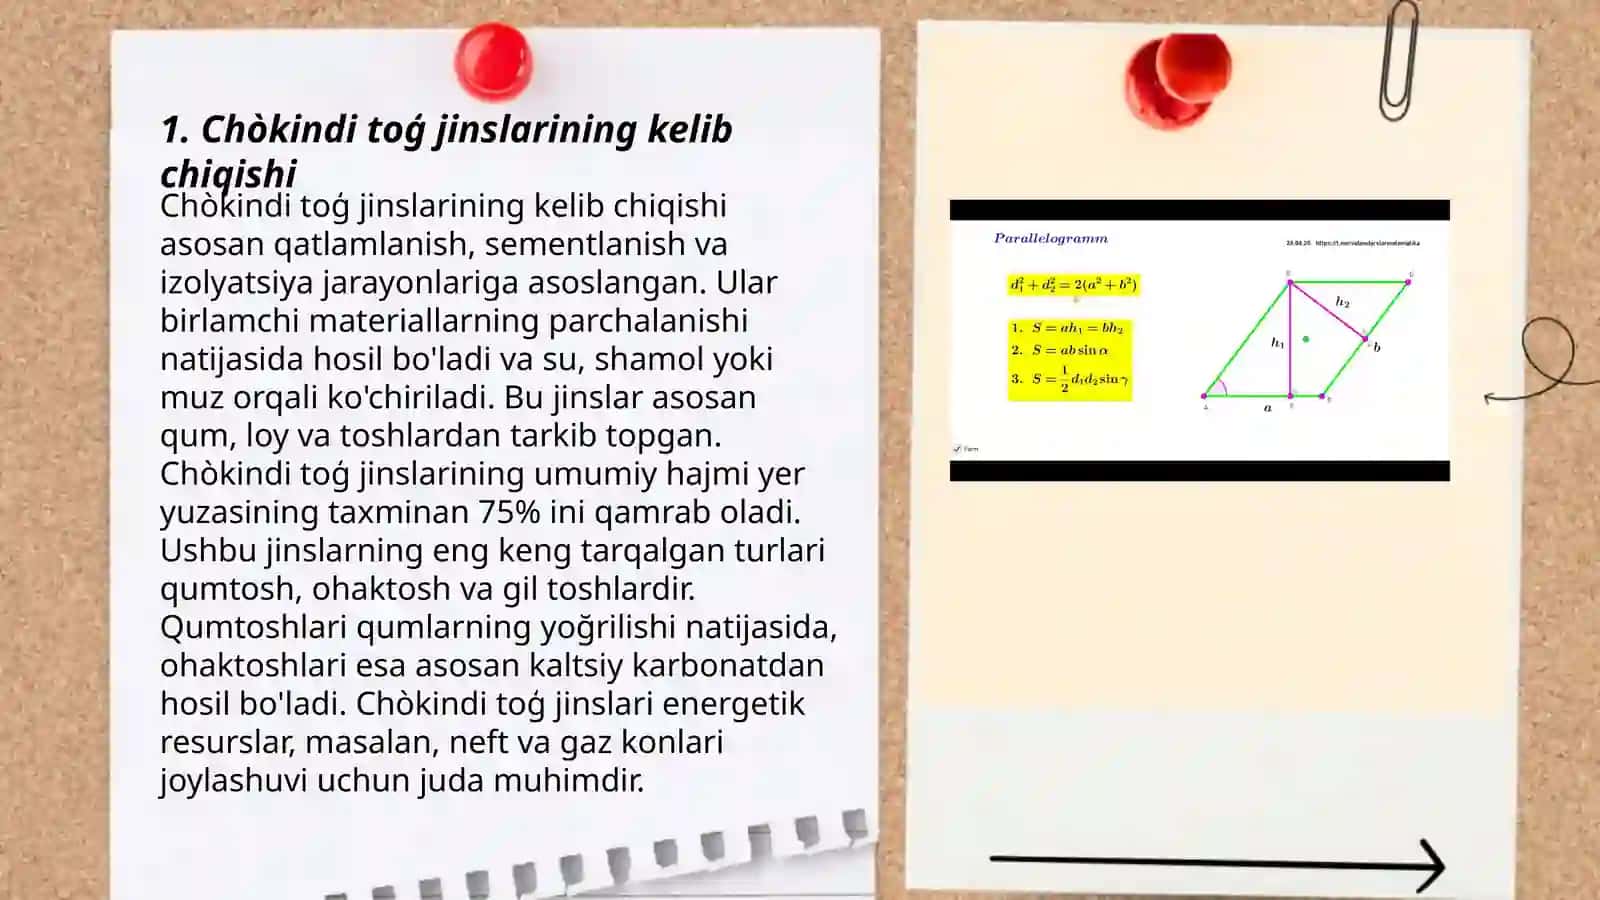 1. Chòkindi toģ jinslarining kelib
chiqishi
Chòkindi toģ jinslarining kelib chiqishi
asosan qatlamlanish, sementlanish va
izolyatsiya jarayonlariga asoslangan. Ular
birlamchi materiallarning parchalanishi
natijasida hosil bo'ladi va su, shamol yoki
muz orqali ko'chiriladi. Bu jinslar asosan
qum, loy va toshlardan tarkib topgan.
Chòkindi toģ jinslarining umumiy hajmi yer
yuzasining taxminan 75% ini qamrab oladi.
Ushbu jinslarning eng keng tarqalgan turlari
qumtosh, ohaktosh va gil toshlardir.
Qumtoshlari qumlarning yoğrilishi natijasida,
ohaktoshlari esa asosan kaltsiy karbonatdan
hosil bo'ladi. Chòkindi toģ jinslari energetik
resurslar, masalan, neft va gaz konlari
joylashuvi uchun juda muhimdir.
Parallelogramm
d₁² + d₂² = 2(a² + b²)
1. S = ah₁ = bh₂
2. S = ab sin α
3. S = 1/2 d₁d₂ sin γ
h₂
h₁
b
A
a